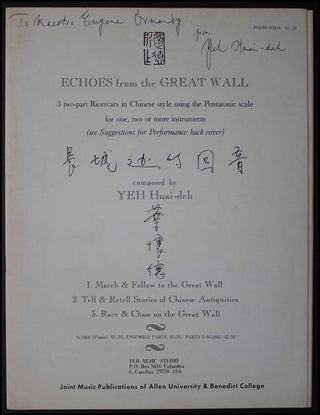 To Maestro Eugene Ormandy
PIANO SOLO: $1.50
from
Yeh Huai-deh
ECHOES from the GREAT WALL
3 two-part Ricercars in Chinese style using the Pentatonic scale
for one, two or more instruments
(see Suggestions for Performance: back cover)
長城边的回音
composed by
YEH Huai-deh
葉懷德
1. March & Follow to the Great Wall
2. Tell & Retell Stories of Chinese Antiquities
3. Race & Chase on the Great Wall
SCORE (Piano) $1.50, ENSEMBLE PARTS $1.50, PARTS & SCORE $2.50
YEH MUSIC STUDIO
P.O. Box 5436 Columbia
S. Carolina 29250 USA
Joint Music Publications of Allen University & Benedict College